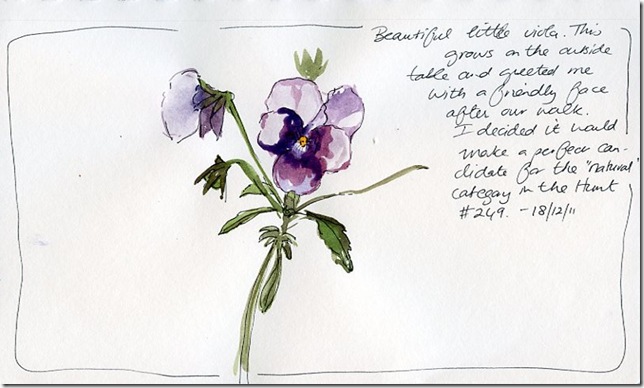 Beautiful little viola. This
grows on the outside
table and greeted me
with a friendly face
after our walk.
I decided it would
make a perfect can-
didate for the 'natural'
category in the Hunt
#249. - 18/12/11